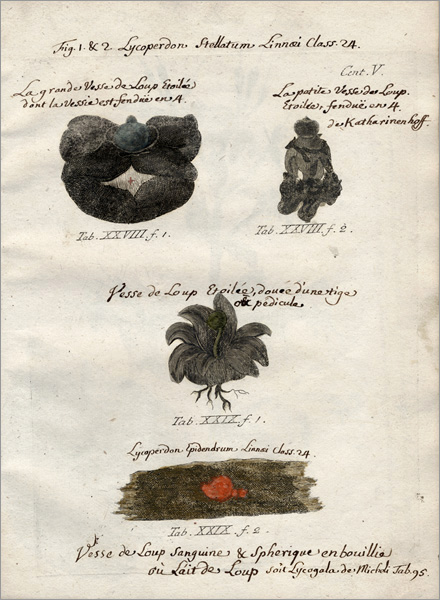 Fig. 1. & 2. Lycoperdon Stellatum Linnæi Class. 24.
Cent. V.
La grande Vesse de Loup Etoilée
dont la Vessie est fendue en 4.
La petite Vesse de Loup.
Etoilée, fendue en 4.
de Katharinenhoff.
Tab. XXVIII. f. 1.
Tab. XXVIII. f. 2.
Vesse de Loup Etoilée, douée d'une tige
ou pédicule
Tab. XXIX. f. 1.
Lycoperdon Epidendrum Linnæi Class. 24.
Tab. XXIX. f. 2.
Vesse de Loup Sanguine & Spherique en bouillie
ou Lait de Loup soit Lycogala de Micheli Tab. 95.